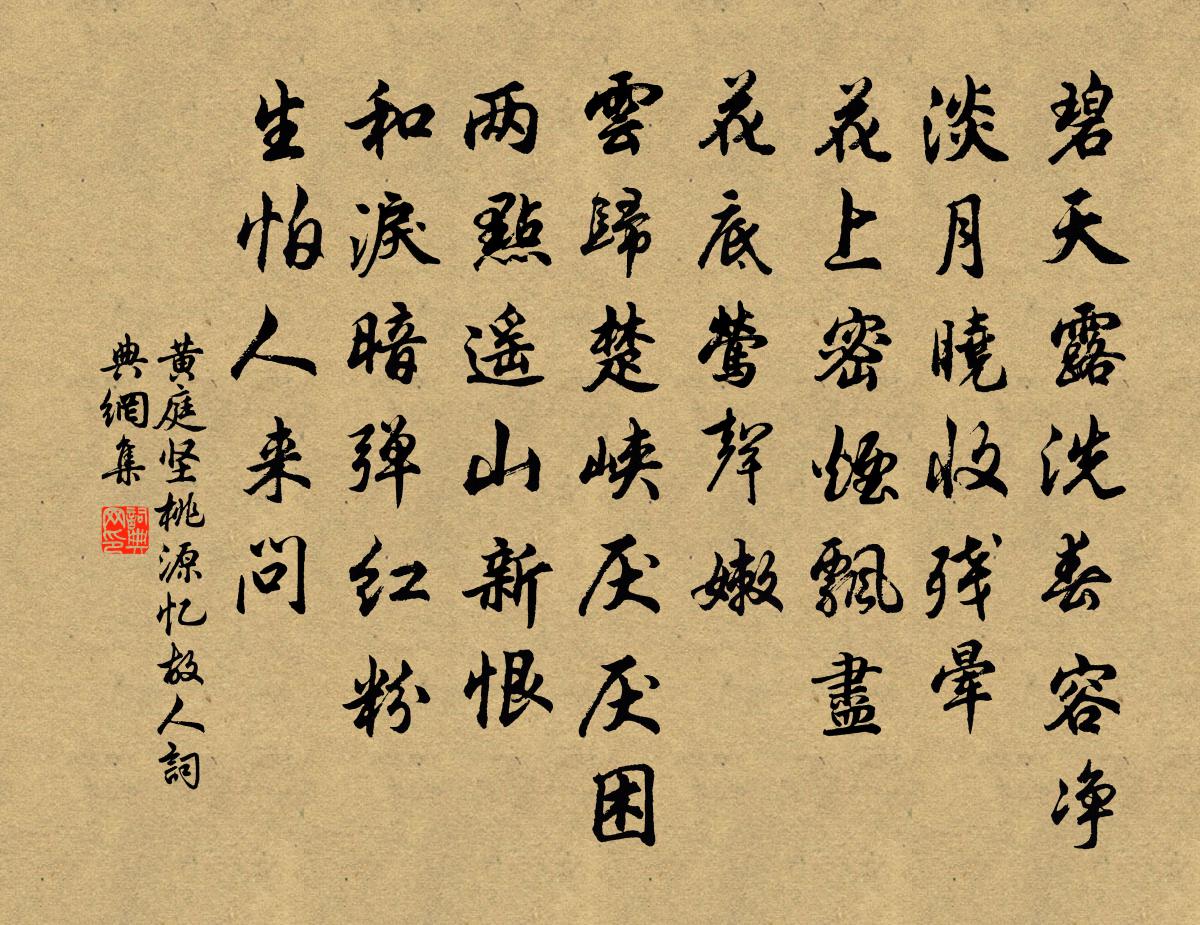 碧天露洗春容净
淡月曉收残暈
花上密煙飄盡
花底鶯聲嫩
雲歸楚峡厌厌困
两點遥山新恨
和淚暗弹红粉
生怕人来问
黄庭坚桃源忆故人詞
典網集
詞典
网印